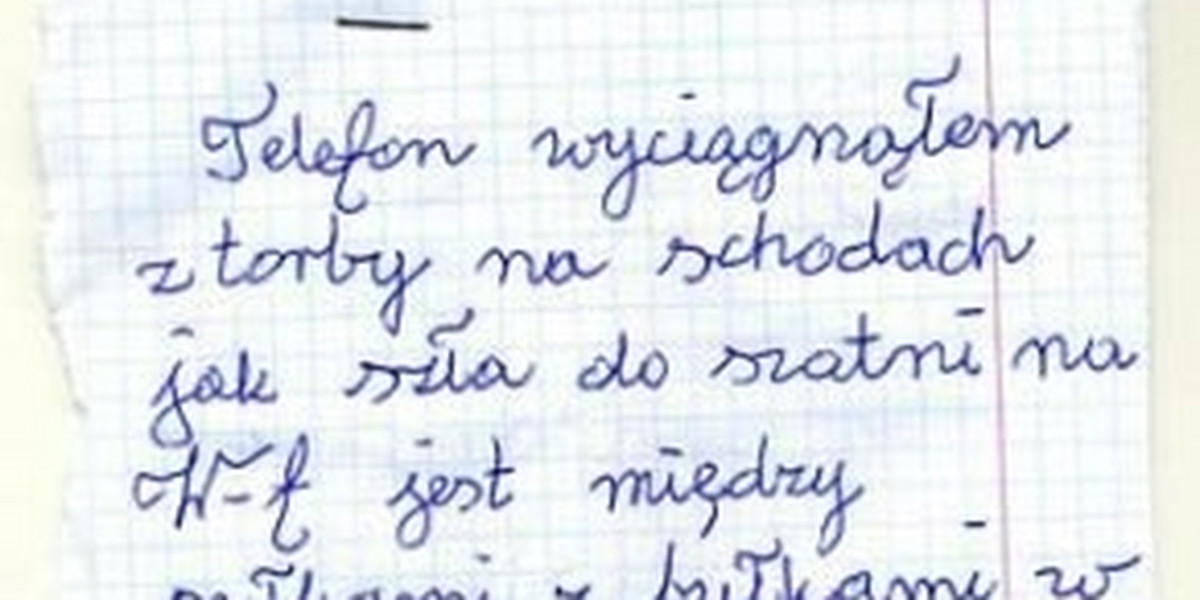 Telefon wyciągnąłem
z torby na schodach
jak szła do szatni na
W-f jest między
z w